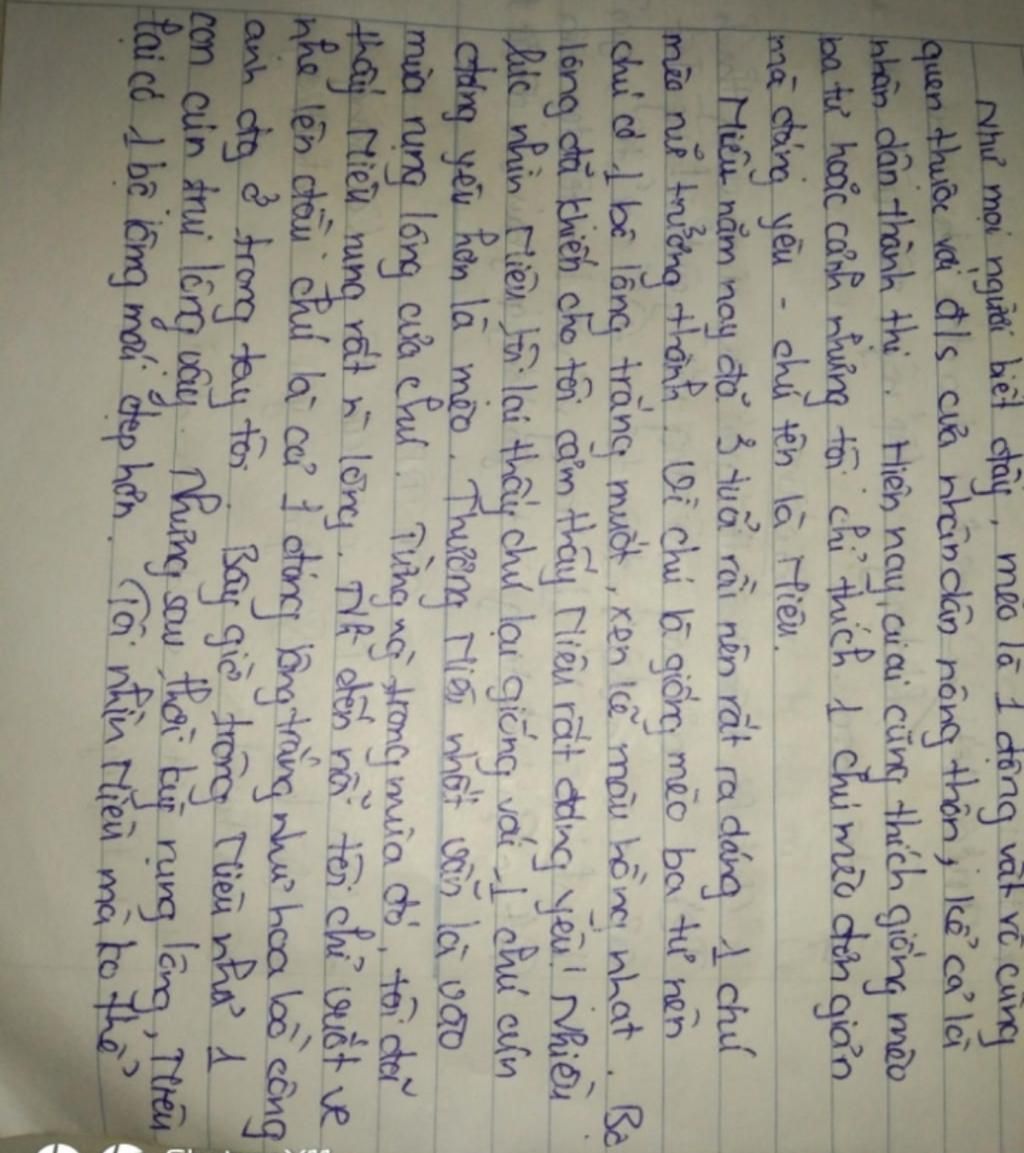 Như mọi người biết đấy, mèo là 1 động vật vô cùng
quen thuộc với đ/s của nhân dân nông thôn, kể cả là
nhân dân thành thị. Hiện nay, ai ai cũng thích giống mèo
ba tư hoặc cảnh nhưng tôi chỉ thích 1 chú mèo đơn giản
mà đáng yêu - chú tên là Miêu.
Miêu năm nay đã 3 tuổi rồi nên rất ra dáng 1 chú
mèo nữ trưởng thành. Vì chú là giống mèo ba tư nên
chú có 1 bộ lông trắng muốt, xen kẽ màu hồng nhạt. Bộ
lông đã khiến cho tôi cảm thấy Miêu rất đáng yêu! Nhiều
lúc nhìn Miêu, tôi lại thấy chú lại giống với 1 chú cún
đáng yêu hơn là mèo. Thương Miêu nhất vẫn là vào
mùa rụng lông của chú. Từng ngà trong mùa đó, tôi đã
thấy Miêu rụng rất n` lông. đến nỗi tôi chỉ vuốt ve
nhẹ lên đầu chú là cả 1 đống lông trắng như hoa bồ công
anh đg ở trong tay tôi. Bây giờ trông Miêu như 1
con cún trụi lông vậy. Nhưng sau thời kỳ rụng lông, Miêu
lại có 1 bộ lông mới đẹp hơn. Tôi nhìn Miêu mà ko thể